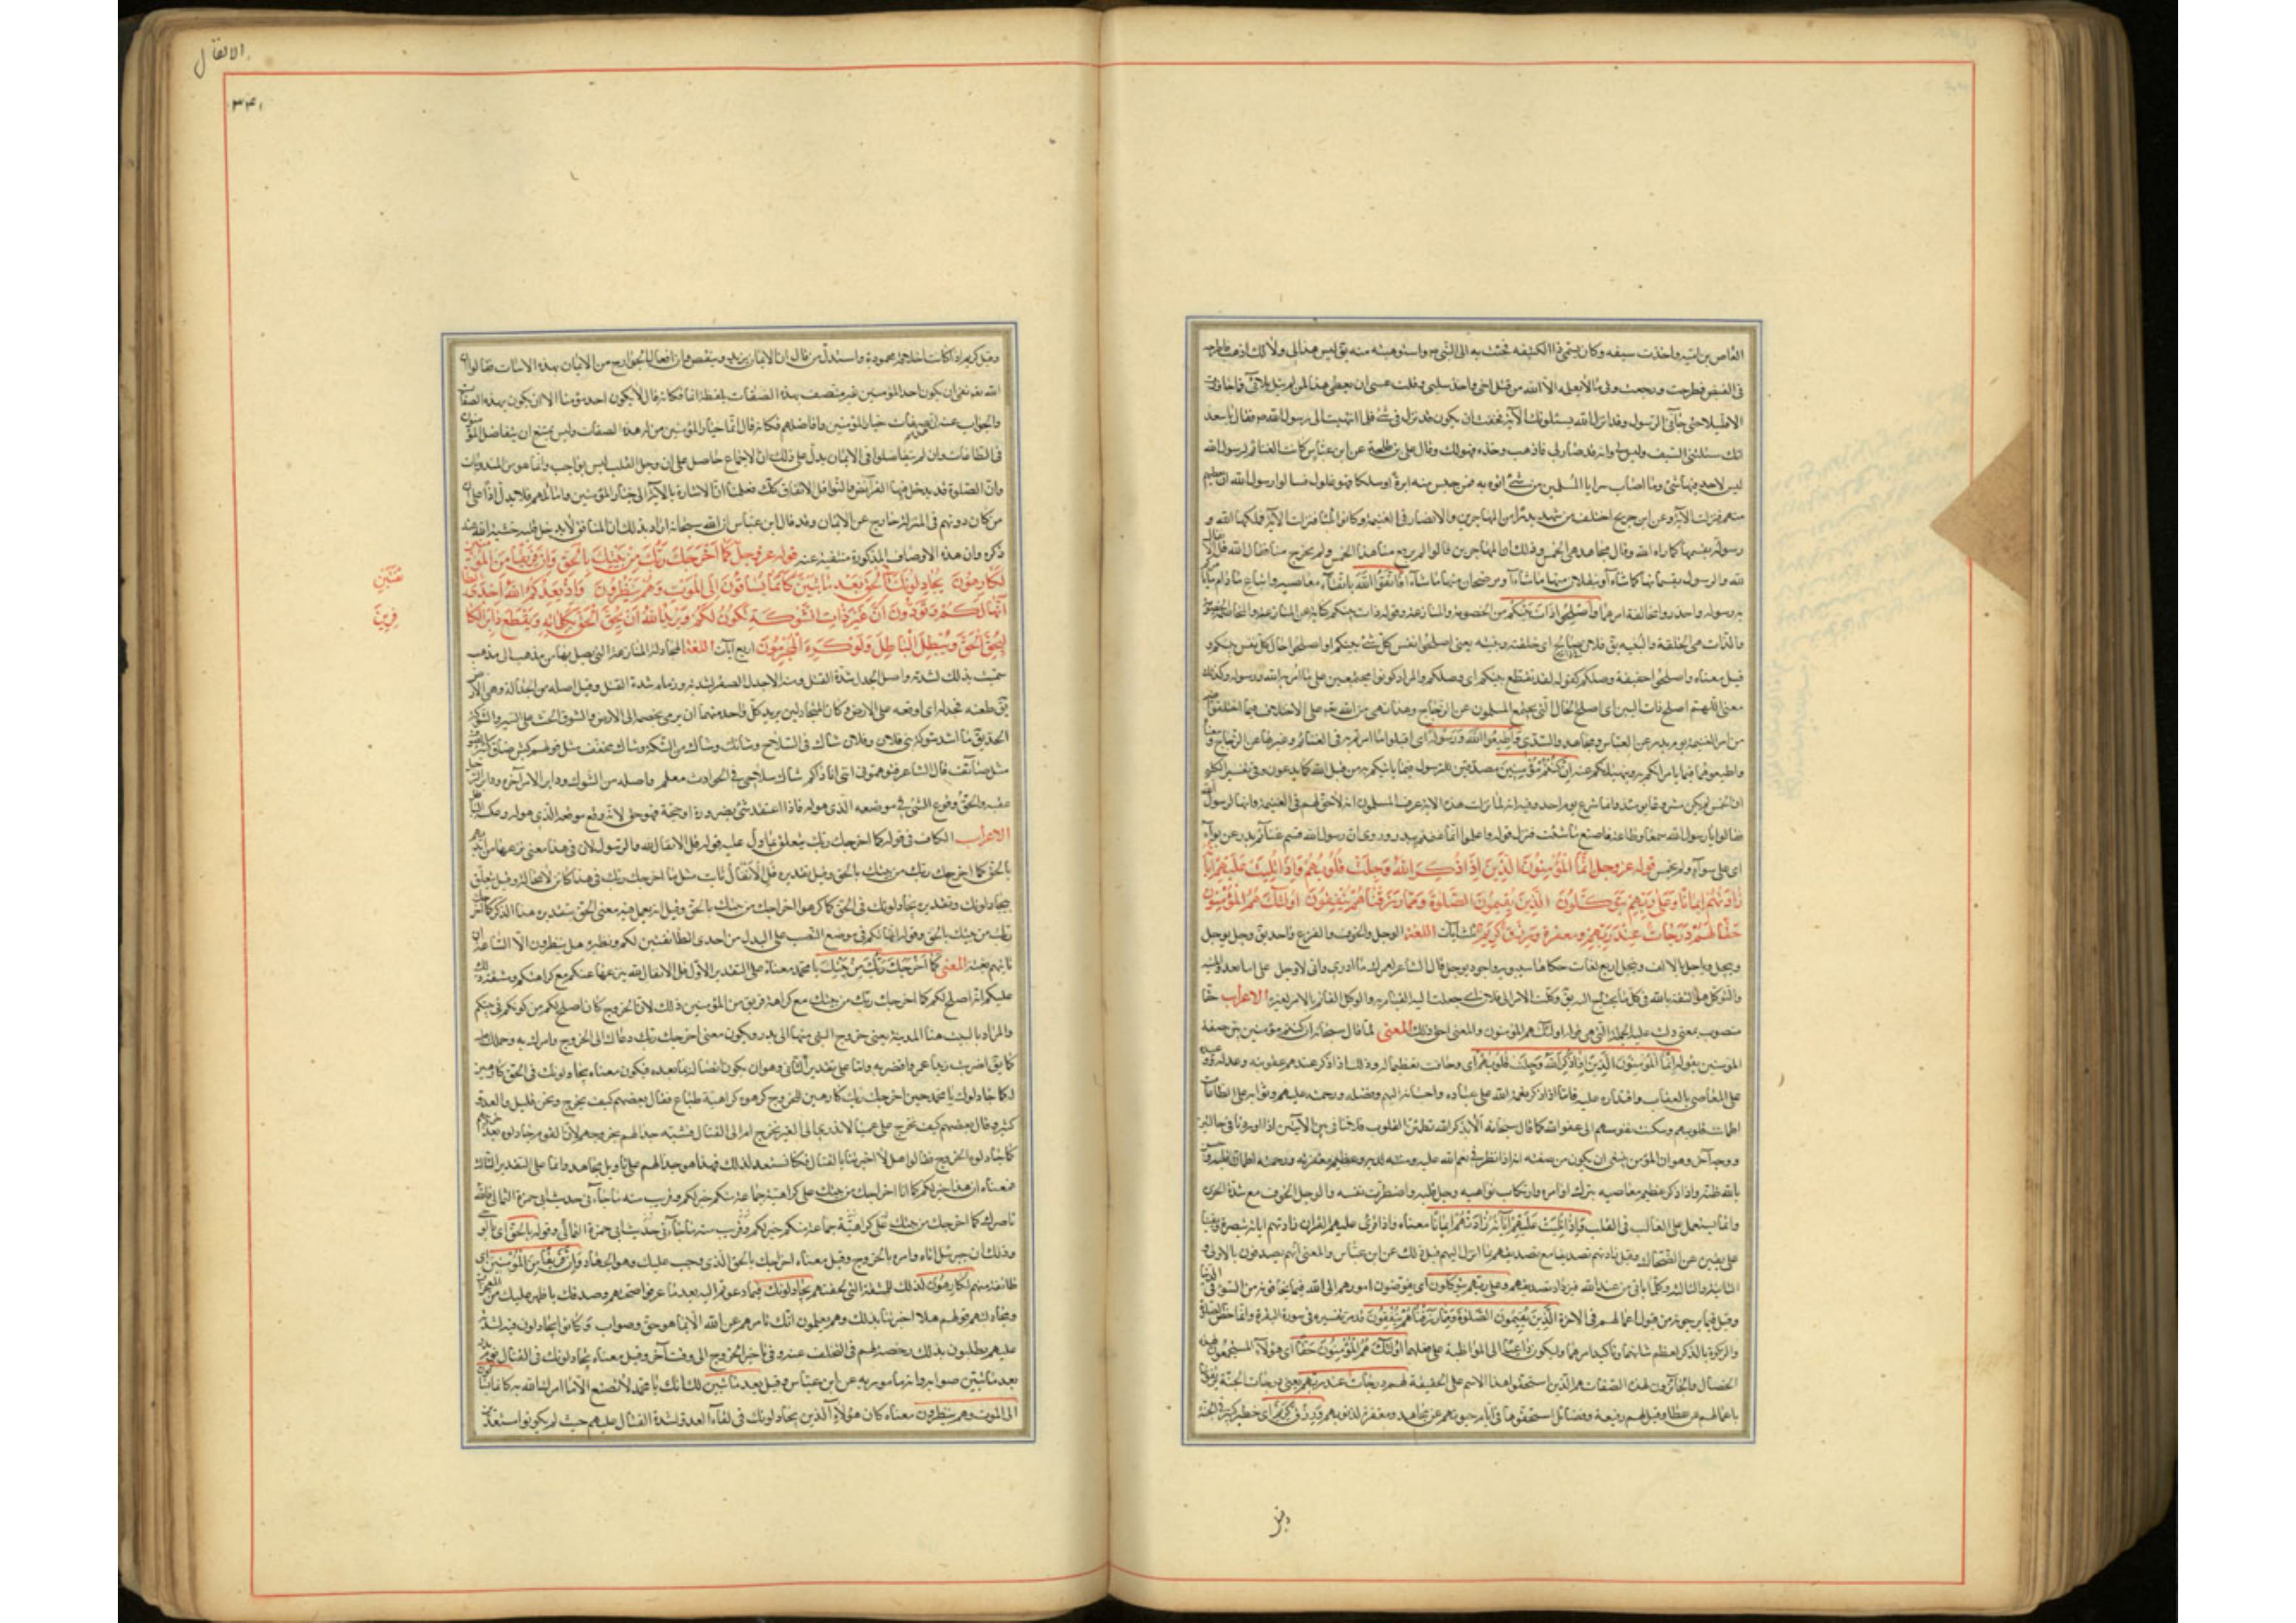 العاص بن امية واخذت سيفه وكان يسمى ذا الكتيفة فجئت به الى النبي ص واستوهبته منه فق ليس هذا لى ولا لك اذهب فاطرحه
فى القبض فطرحت ورجعت وبى ما لا يعلمه الا الله من قتل اخى واخذ سلبى وقلت عسى ان يعطى هذا لمن لم يبل بلائى فما جاوزت
الا قليلا حتى جاءنى الرسول وقد انزل الله يسئلونك الآية فخفت ان يكون قد نزل فى شئ فلما انتهيت الى رسول الله ص قال يا سعد
انك سئلتنى السيف وليس لى وانه قد صار لى فاذهب وخذه فهو لك وقال على بن طلحة عن ابن عباس كانت الغنائم لرسول الله
ليس لاحد فيها شئ وما اصاب سرايا المسلمين من شئ اتوه به فمن حبس منه ابرة او سلكا فهو غلول فسالوا رسول الله ان يعطيهم
منها فنزلت الآية وعن ابن جريج اختلف من شهد بدرا من المهاجرين والانصار فى الغنيمة وكانوا اثلاثا فنزلت الآية فملكها الله و
رسوله يقسمها كما اراه الله وقال مجاهد هى الخمس وذلك ان المهاجرين قالوا لم يرفع منا هذا الخمس ولم يخرج منا فقال الله قل الانفال
لله والرسول يقسمانها كما شاءا او ينفلان منها ما شاءا او يرضخان منها ما شاءا فاتقوا الله باتقاء معاصيه واتباع ما ياذن
به رسوله واحذروا مخالفة امرهما واصلحوا ذات بينكم من الخصومة والمنازعة وقوله ذات بينكم كناية عن المنازعة والخصومة
والذات هى الخلقة والبنية يق فلان فى ذاته صالح اى خلقته وبنيته يعنى اصلحوا نفس كل شئ بينكم او اصلحوا حال كل نفس بينكم و
قيل معناه واصلحوا حقيقة وصلكم كقوله لقد تقطع بينكم اى وصلكم والمراد كونوا مجتمعين على ما امر الله ورسوله وكذلك
معنى اللهم اصلح ذات البين اى اصلح الحال التى يجتمع المسلمون عن الزجاج وهذا نهى من الله تع على الاختلاف فيما اختلفوا
من امر الغنيمة يوم بدر عن ابن عباس ومجاهد والسدى واطيعوا الله ورسوله اى اقبلوا ما امرتم به فى الغنائم وغيرها عن الزجاج
واطيعوهما فيما يامرانكم به وينهيانكم عنه ان كنتم مؤمنين مصدقين للرسول فيما ياتيكم به من قبل الله كما تدعون وفى تفسير الكلبى
ان الخمس لم يكن مشروعا يومئذ وانما شرع يوم احد وفيه انه لما نزلت هذه الآية عرف المسلمون انه لا حق لهم فى الغنيمة وانها لرسول الله
فقالوا يا رسول الله سمعا وطاعة فاصنع ما شئت فنزل قوله واعلموا انما غنمتم ببدر وروى ان رسول الله قسم غنائم بدر عن بواء
اى على سواء ولم يخمس قوله عز وجل انما المؤمنون الذين اذا ذكر الله وجلت قلوبهم واذا تليت عليهم اياته
زادتهم ايمانا وعلى ربهم يتوكلون الذين يقيمون الصلوة ومما رزقناهم ينفقون اولئك هم المؤمنون
حقا لهم درجات عند ربهم ومغفرة ورزق كريم ثلث آيات اللغة الوجل والخوف والفزع واحد يق وجل يوجل
وييجل وياجل بالالف ويجل اربع لغات حكاها سيبويه واجوده يوجل قال الشاعر لعمرك ما ادرى وانى لاوجل على اينا تعدو المنية
والتوكل هو الثقة بالله فى كل ما يحتاج اليه يق وكلت الامر الى فلان اى جعلت اليه القيام به والوكيل القائم بالامر لغيره الاعراب حقا
منصوب بمعنى دلت عليه الجملة التى هى قوله اولئك هم المؤمنون والمعنى احق ذلك المعنى لما قال سبحانه ان كنتم مؤمنين بين صفة
المؤمنين بقوله انما المؤمنون الذين اذا ذكر الله وجلت قلوبهم اى وخافت تعظيما له وذلك اذا ذكر عندهم عقوبته وعدله ووعيده
على المعاصى بالعقاب واقتداره عليه فاما اذا ذكر نعمة الله على عباده واحسانه اليهم وفضله ورحمته عليهم وثوابه على الطاعات
اطمانت قلوبهم وسكنت نفوسهم الى عفو الله كما قال سبحانه الا بذكر الله تطمئن القلوب فلا تنافى بين الآيتين اذا وردتا فى حالتين
ووجه آخر وهو ان المؤمن ينبغى ان يكون من صفته انه اذا نظر فى نعم الله عليه ومننه لديه وعظيم مغفرته ورحمته اطمان قلبه وحسن
بالله ظنه واذا ذكر عظيم معاصيه بترك اوامره وارتكاب نواهيه وجل قلبه واضطربت نفسه والوجل الخوف مع شدة الحزن
وانما يستعمل على الغالب فى القلب واذا تليت عليهم آياته زادتهم ايمانا معناه واذا قرئ عليهم القران زادتهم اياته تبصرة ويقينا
على يقين عن الضحاك وقيل زادتهم تصديقا مع تصديقهم بما انزل اليهم قبل ذلك عن ابن عباس والمعنى انهم يصدقون بالاولى و
الثانية والثالثة وكل ما ياتى من عند الله فيزداد تصديقهم وعلى ربهم يتوكلون اى يفوضون امورهم الى الله فيما يخافونه من السوء فى الدنيا
وقيل فيما يرجونه من قبول اعمالهم فى الاخرة الذين يقيمون الصلوة ومما رزقناهم ينفقون قد مر تفسيره فى سورة البقرة وانما خص الصلوة
والزكوة بالذكر لعظم شانهما وتاكيد امرهما وليكون داعيا الى المواظبة على فعلهما اولئك هم المؤمنون حقا اى هؤلاء المستجمعون لهذه
الخصال والحائزون لهذه الصفات هم الذين استحقوا هذا الاسم على الحقيقة لهم درجات عند ربهم يعنى درجات الجنة يرتقونها
باعمالهم عن عطا وقيل لهم رفيعة وفضائل استحقوها فى ايام حيوتهم عن مجاهد ومغفرة لذنوبهم ورزق كريم اى خطير كبير فى الجنة
وقيل
الانفال
٣٤١
وقيل كريم اذا كانت اخلاقه محمودة واستدل من قال ان الايمان يزيد وينقص وان افعال الجوارح من الايمان بهذه الايات فقالوا ان
الله تع نفى ان يكون احد المؤمنين غير متصف بهذه الصفات بلفظة انما فكانه قال لا يكون احد مؤمنا الا ان يكون بهذه الصفات
والجواب عنه ان هذه صفات خيار المؤمنين وافاضلهم فكانه قال انما خيار المؤمنين من له هذه الصفات وليس يمتنع ان يتفاضل المؤمنون
فى الطاعات وان لم يتفاضلوا فى الايمان يدل على ذلك ان الاجماع حاصل على ان وجل القلب ليس بواجب وانما هو من المندوبات
وان الصلوة قد يدخل فيها الفرائض والنوافل والانفاق كذلك فعلمنا ان الاشارة بالآية الى خيار المؤمنين واماثلهم فلا يدل اذا على ان
من كان دونهم فى المنزلة خارج عن الايمان وقد قال ابن عباس ان الله سبحانه اراد بذلك ان المنافق لا يدخل قلبه خشية الله عند
ذكره وان هذه الاوصاف المذكورة منتفية عنه قوله عز وجل كما اخرجك ربك من بيتك بالحق وان فريقا من المؤمنين
لكارهون يجادلونك فى الحق بعد ما تبين كانما يساقون الى الموت وهم ينظرون واذ يعدكم الله احدى الطا
ئفتين
انها لكم وتودون ان غير ذات الشوكة تكون لكم ويريد الله ان يحق الحق بكلماته ويقطع دابر الكا
فرين
ليحق الحق ويبطل الباطل ولو كره المجرمون اربع آيات اللغة المجادلة المنازعة التى يصل بها من مذهب الى مذهب
سميت بذلك لشدته واصل الجدل شدة الفتل ومنه الاجدل الصقر لشدته وزمام شدة الفتل وقيل اصله من الجدالة وهى الارض
يق طعنه فجدله اى اوقعه على الارض وكان المتجادلين يريد كل واحد منهما ان يرمى بخصمه الى الارض والسوق الحث على السير والشوكة
الحد يق ما اشد شوكة بنى فلان وفلان شاك فى السلاح وشائك وشاك من الشكة وشاك مخفف مثل قولهم كبش صاف
عقبه والحق وقوع الشئ فى موضعه الذى هو له فاذا اعتقد شئ بضرورة او حجة فهو حق لانه وقع موقعه الذى هو له وعكسه الباطل
الاعراب الكاف فى قوله كما اخرجك ربك يتعلق بما دل عليه قوله قل الانفال لله والرسول لان فى هذا معنى نزعها من ايديهم
بالحق كما اخرجك ربك من بيتك بالحق وقيل تقديره قل الانفال ثابت مثل ما اخرجك ربك
يجادلونك وتقديره يجادلونك فى الحق كما كرهوا اخراجك من بيتك بالحق وقيل انه يعمل فيه معنى الحق بتقدير هذا الذكر الحق كما اخرجك
ربك من بيتك بالحق وقوله انها لكم فى موضع النصب على البدل من احدى الطائفتين لكم ونظيره هل ينظرون الا الساعة ان
تاتيهم بغتة المعنى كما اخرجك ربك من بيتك يا محمد معناه على التقدير الاول قل الانفال لله ينزعها عنكم مع كراهتكم ومشقة ذلك
عليكم انه اصلح لكم كما اخرجك ربك من بيتك مع كراهة فريق من المؤمنين ذلك لان الخروج كان اصلح لكم من كونكم فى بيتكم
والمراد بالبيت هنا المدينة يعنى خروج النبى منها الى بدر ويكون معنى اخرجك ربك دعاك الى الخروج وامرك به وحملك عليه
كما يق اضربت زيدا عمرا فضربه واما على تقدير الثانى وهو ان يكون متصلا بما بعده فيكون معناه يجادلونك فى الحق كارهين
له كما جادلوك يا محمد حين اخرجك ربك كارهين للخروج كرهوه كراهية طباع فقال بعضهم كيف نخرج ونحن قليل والعدو
كثير وقال بعضهم كيف نخرج على عمياء لا ندرى الى العير نخرج ام الى القتال فشبه جدالهم بخروجهم لان القوم جادلوه بعد خروجهم
كما جادلوه الخروج فقالوا هلا اخبرتنا بالقتال فكنا نستعد لذلك فهذا هو جدالهم على تاويل مجاهد واما على التقدير الثالث
فمعناه ان هذا خير لكم كما ان اخراجك من بيتك على كراهية جماعة منكم خير لكم وقريب منه ما جاء فى حديث ابى حمزة الثمالى فالله
ناصرك كما اخرجك من بيتك على كراهية جماعة منكم خير لكم وقريب منه ما جاء فى حديث ابى حمزة الثمالى وقوله بالحق اى بالوحى
وذلك ان جبرئيل اتاه وامره بالخروج وقيل معناه اخرجك بالحق الذى وجب عليك وهو الجهاد وان فريقا من المؤمنين اى
طائفة منهم لكارهون لذلك للمشقة التى لحقتهم يجادلونك فيما دعوتهم اليه بعد ما عرفوا صحته وصدقك بما ظهر عليك من المعجزات
ومجادلتهم قولهم هلا اخبرتنا بذلك وهم يعلمون انك لا تامرهم عن الله الا بما هو حق وصواب وكانوا يجادلون فيه لشدته
عليهم يطلبون بذلك رخصة لهم فى التخلف عنه وفى تاخير الخروج الى وقت آخر وقيل معناه يجادلونك فى القتال يوم بدر
بعد ما تبين صوابه وانه مامور به عن ابن عباس وقيل بعد ما تبين لك انك يا محمد لا تصنع الا ما امرك الله به كانما يساقون
الى الموت وهم ينظرون معناه كان هؤلاء الذين يجادلونك فى لقاء العدو لشدة القتال عليهم حيث لم يكونوا مستعدين